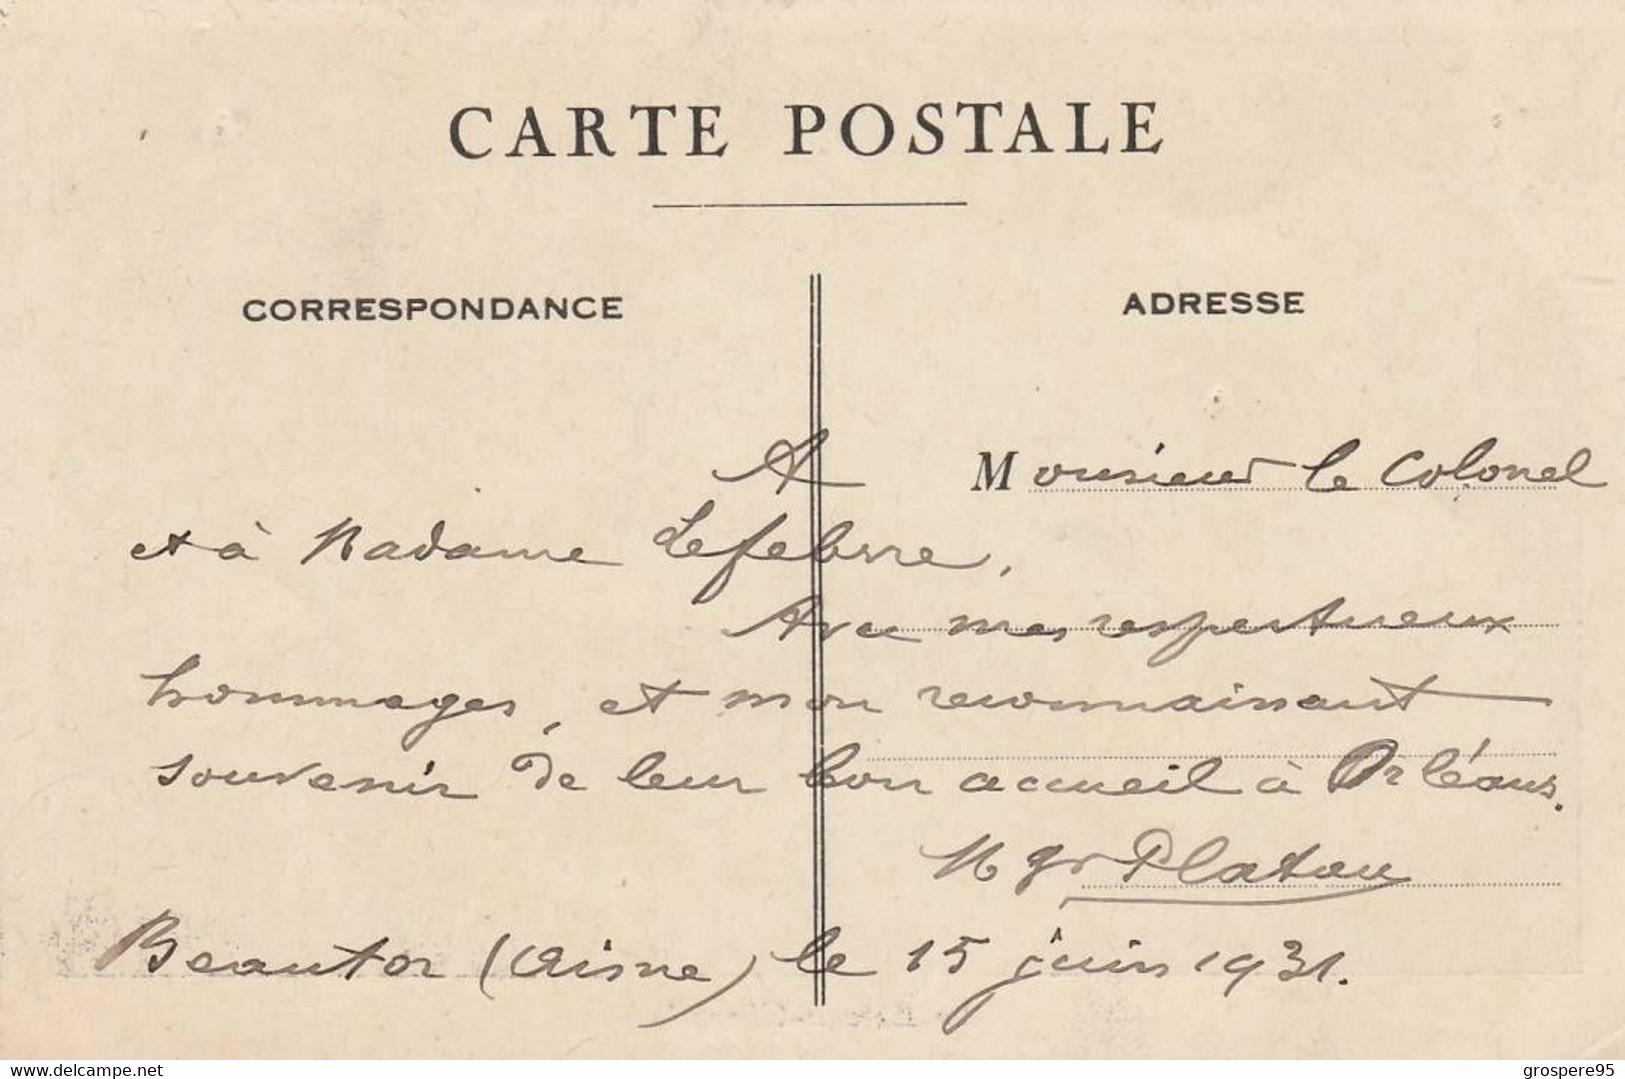 CARTE POSTALE
CORRESPONDANCE
ADRESSE
A Monsieur le Colonel
et à Madame Lefebvre,
Avec mes respectueux
hommages, et mon reconnaissant
souvenir de leur bon accueil à Orléans.
Mgr Platon
Beautor (Aisne) le 15 juin 1931.
www.delcampe.net
grospere95